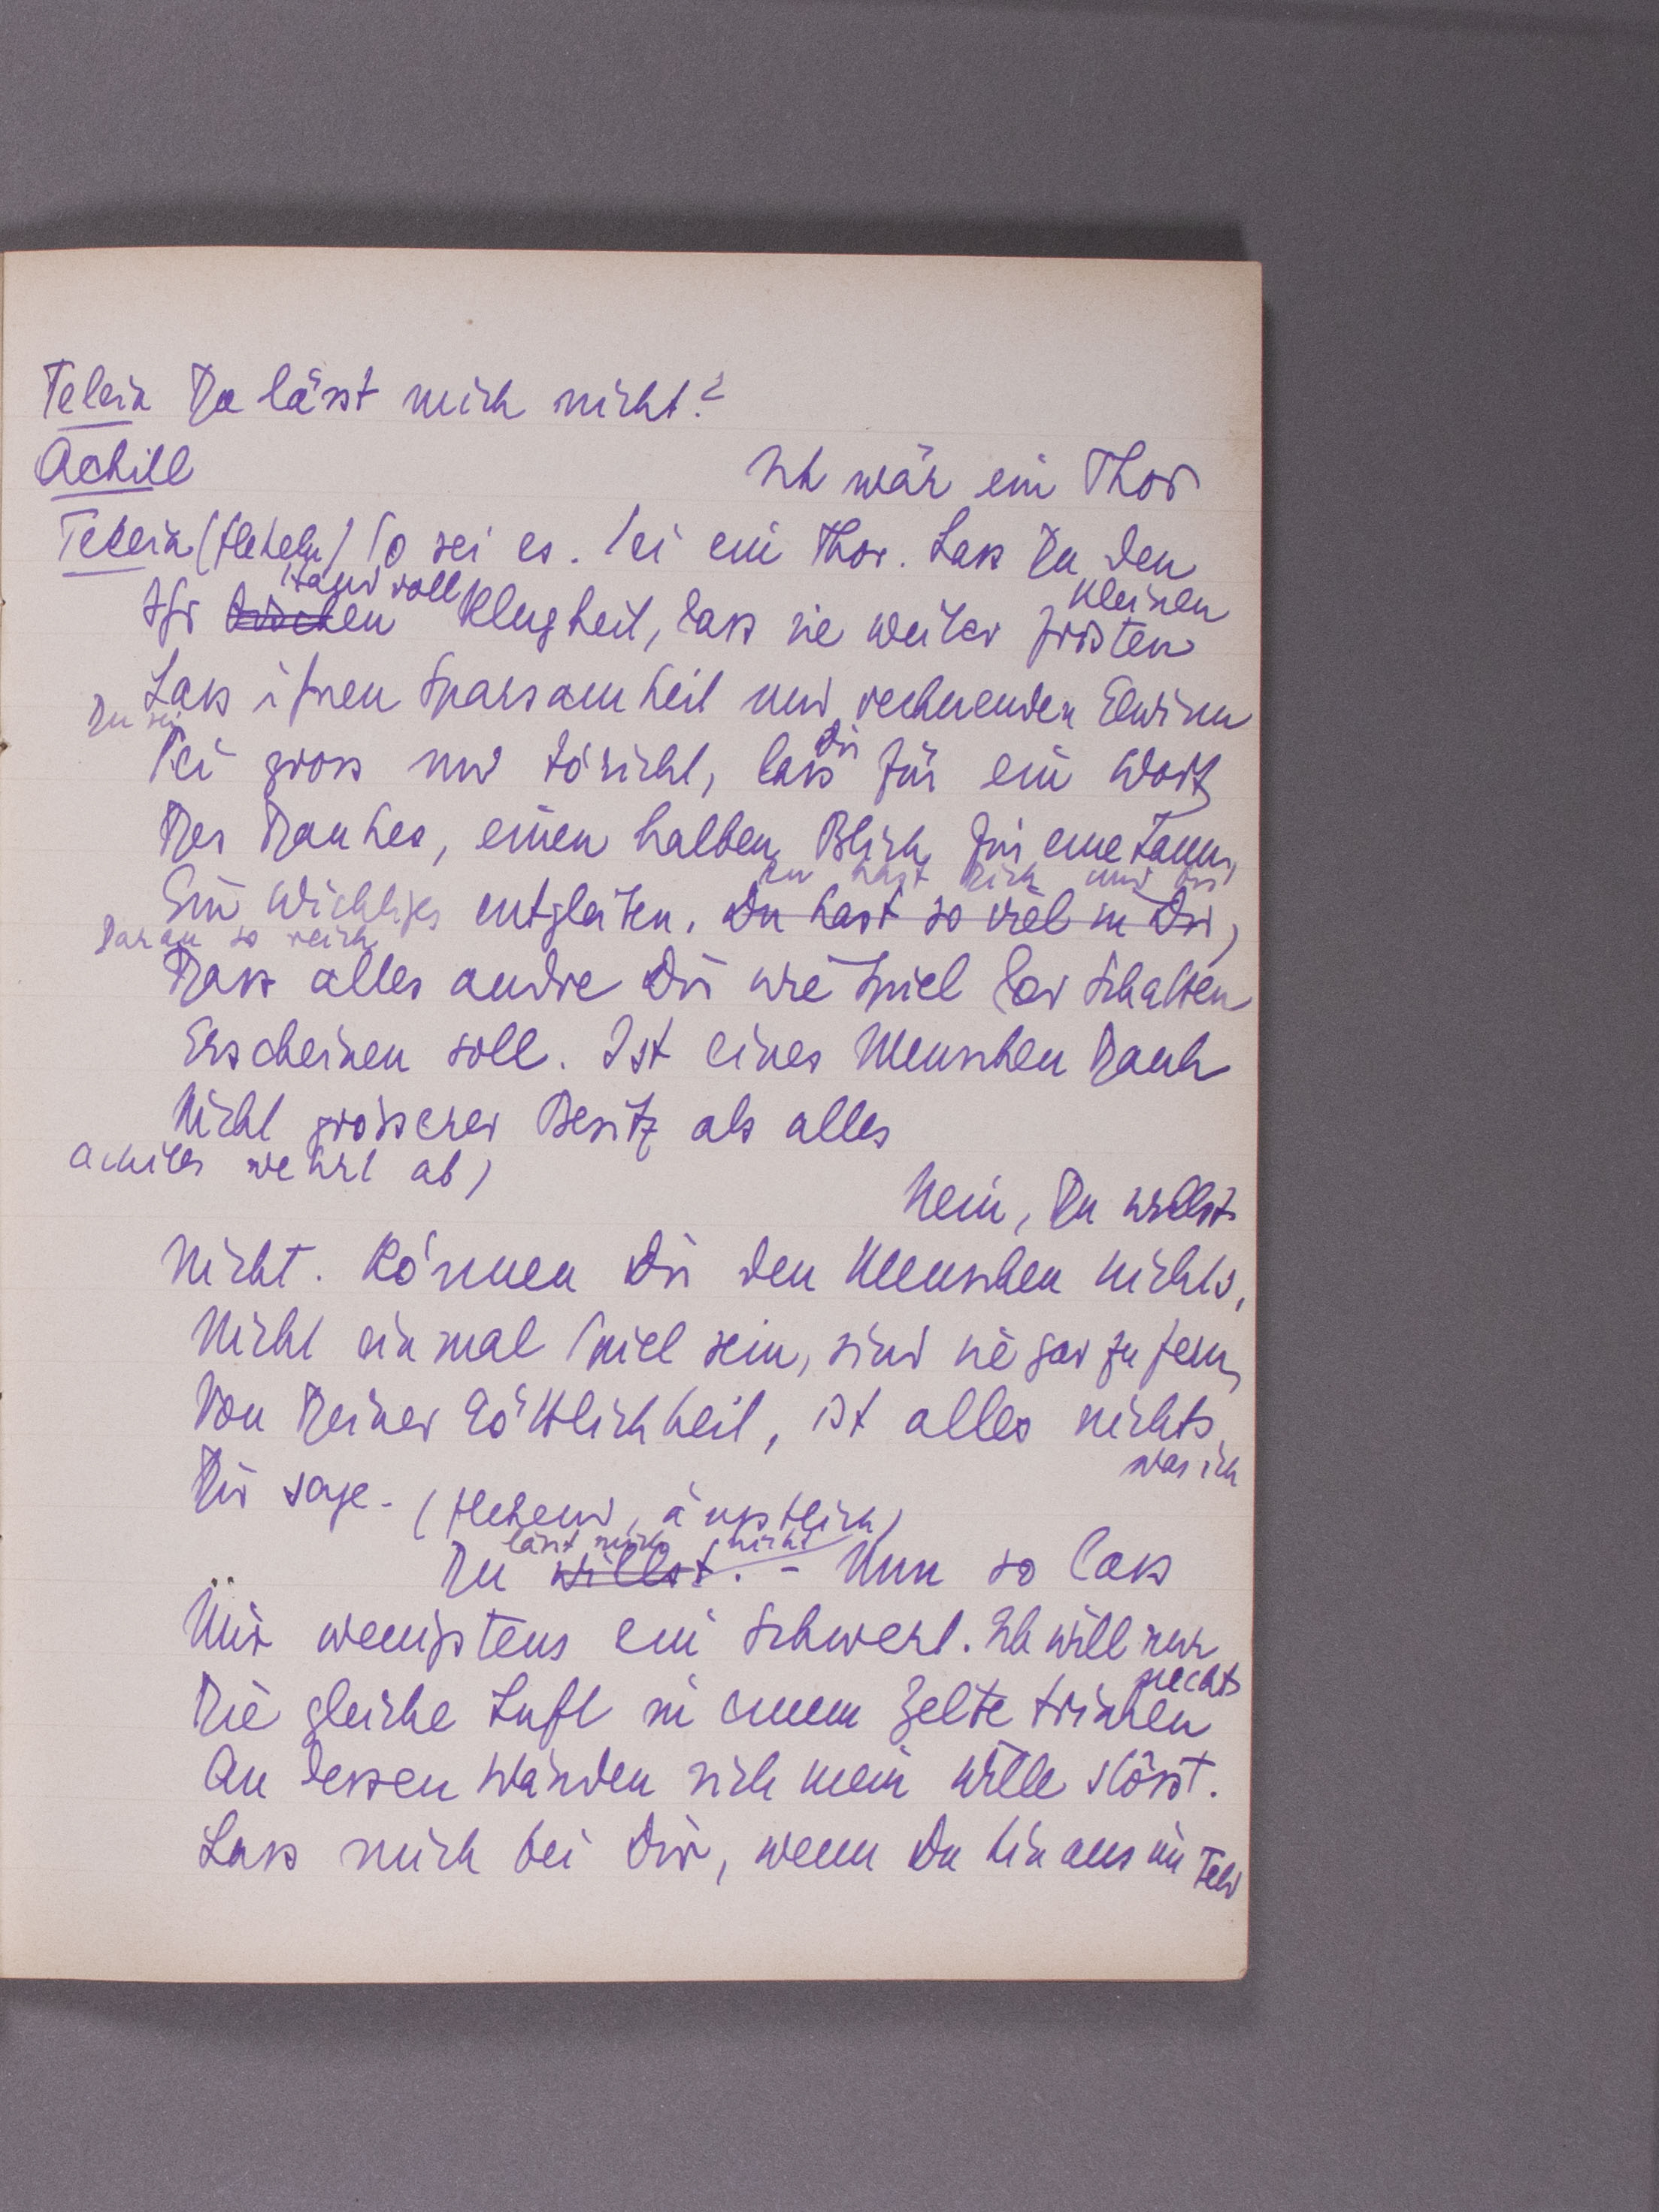 Teleia Du lässt mich nicht?
Achill Ich wär ein Thor
Teleia (flehend) So sei es. Sei ein Thor. Lass Du den Kleinen
Hand voll
Ihr bisschen Klugheit, dass sie weiter fristen
Lass ihnen Sparsamkeit und rechnenden Gewinn
Du sei
Sei gross und töricht, lass Dir für ein Wort
Des Dankes, einen halben Blick für eine Laune
Du hast Dich und bist
Ein Wichtiges entgleiten. Du hast so viel in Dir,
Daran so reich
Dass alles andre Dir wie Spiel der Schatten
Erscheinen soll. Ist eines Menschen Dank
Nicht grösserer Besitz als alles
Achilles wehrt ab)
Nein, Du willst
Nicht. Können Dir den Menschen nichts,
Nicht einmal Spiel sein, sind sie gar zu fern
Von Deiner Göttlichkeit, ist alles nichts
was ich
Dir sage. (flehend, ängstlich)
lässt mich nicht
Du willst. - Nun so lass
Mir wenigstens ein Schwert. Ich will nur
nachts
Die gleiche Luft in einem Zelte trinken
An dessen Wänden sich mein Wille stösst.
Lass mich bei Dir, wenn Du hinaus im Feld